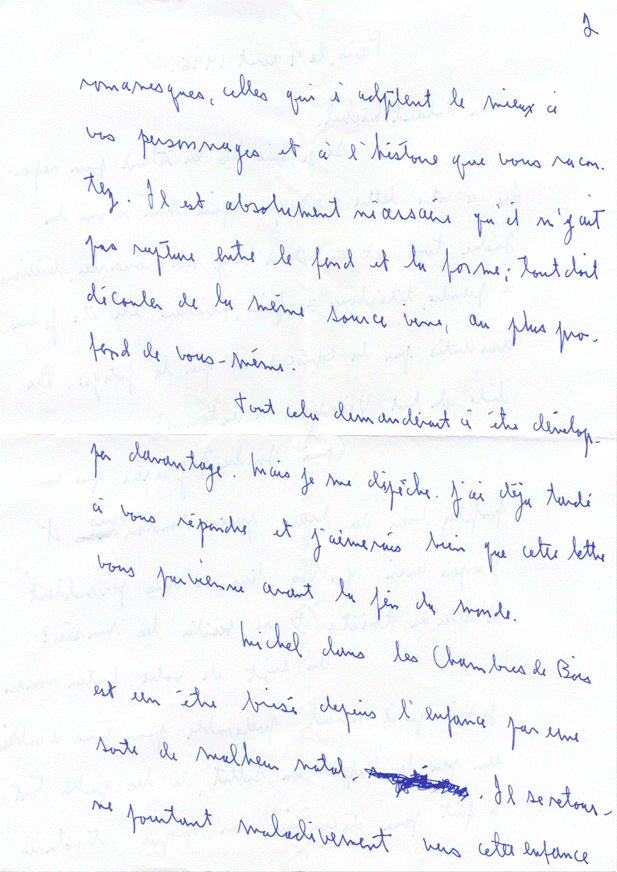 2
romanesques, celles qui s'adaptent le mieux à
vos personnages et à l'histoire que vous racon-
tez. Il est absolument nécessaire qu'il n'y ait
pas rupture entre le fond et la forme; tout doit
découler de la même source vive, au plus pro-
fond de vous-même.
Tout cela demanderait à être dévelop-
pé davantage. Mais je me dépêche. J'ai déjà tardé
à vous répondre et j'aimerais bien que cette lettre
vous parvienne avant la fin du monde.
Michel dans les Chambres de Bois
est un être brisé depuis l'enfance par une
sorte de malheur natal. Il se retour-
ne pourtant maladivement vers cette enfance